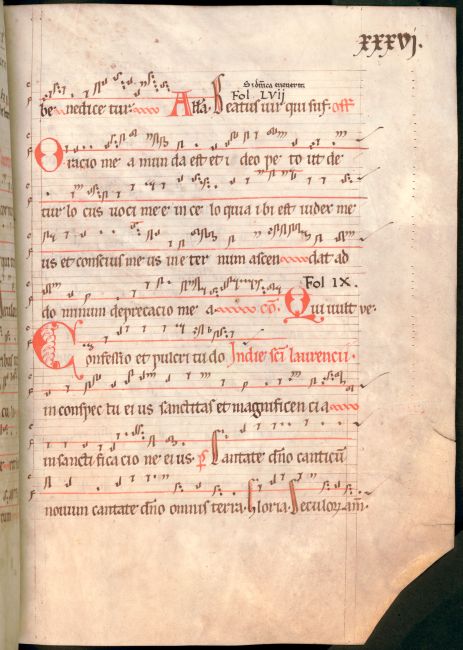 xxxvj.
Fol LVIJ
be nedice tur Alla Beatus vir qui suf off
Oracio me a mun da est et i deo pe to ut de
tur lo cus voci me e in ce lo quia i bi est iudex me
us et conscius me us in e ter num ascen dat ad
Fol IX.
do minum deprecacio me a co Qui vult ve
Confessio et pulcri tu do In die sci laurencii.
in conspec tu ei us sanctitas et magnificen ci a
in sancti fica cio ne ei us. ps Cantate dno canticu
novum cantate dno omnis terra. Gloria. Seculor am.